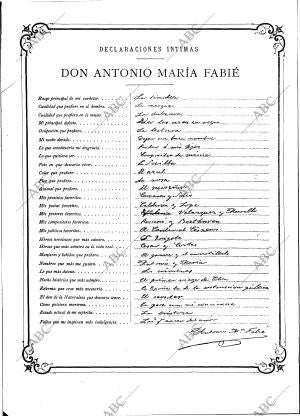 DECLARACIONES ÍNTIMAS
DON ANTONIO MARÍA FABIÉ
Rasgo principal de mi carácter. La timidez
Cualidad que prefiero en el hombre. La energía
Cualidad que prefiero en la mujer. La dulzura
Mi principal defecto.
Ocupación que prefiero. La lectura
Mi sueño dorado. Dejar un buen nombre
Lo que constituiría mi desgracia. Perder á mis hijos
Lo que quisiera ser. Compositor de música
País en que desearía vivir. En Sevilla
Color que prefiero. El azul
Flor que prefiero. La rosa
Animal que prefiero. El ruiseñor
Mis prosistas favoritos. Cervantes y
Mis poetas favoritos. Calderón y Lope
Mis pintores favoritos. Velázquez y Murillo
Mis compositores favoritos. Rossini y Beethoven
Mis políticos favoritos. El Cardenal Cisneros
Héroes novelescos que más admiro. D. Quijote
Héroes que más admiro en la vida real. César y Cortés
Manjares y bebidas que prefiero.
Nombres que más me gustan. y María
Lo que más detesto.
Hecho histórico que más admiro. El primer viaje de Colón
Reforma que creo más necesaria. La de la instrucción pública
El don de la Naturaleza que desearía tener.
Cómo quisiera morirme. En paz con mi conciencia
Estado actual de mi espíritu. La tristeza
Faltas que me inspiran más indulgencia. Las que nacen del amor
Antonio Mª Fabié
ABC
ABC
ABC
ABC
ABC
ABC